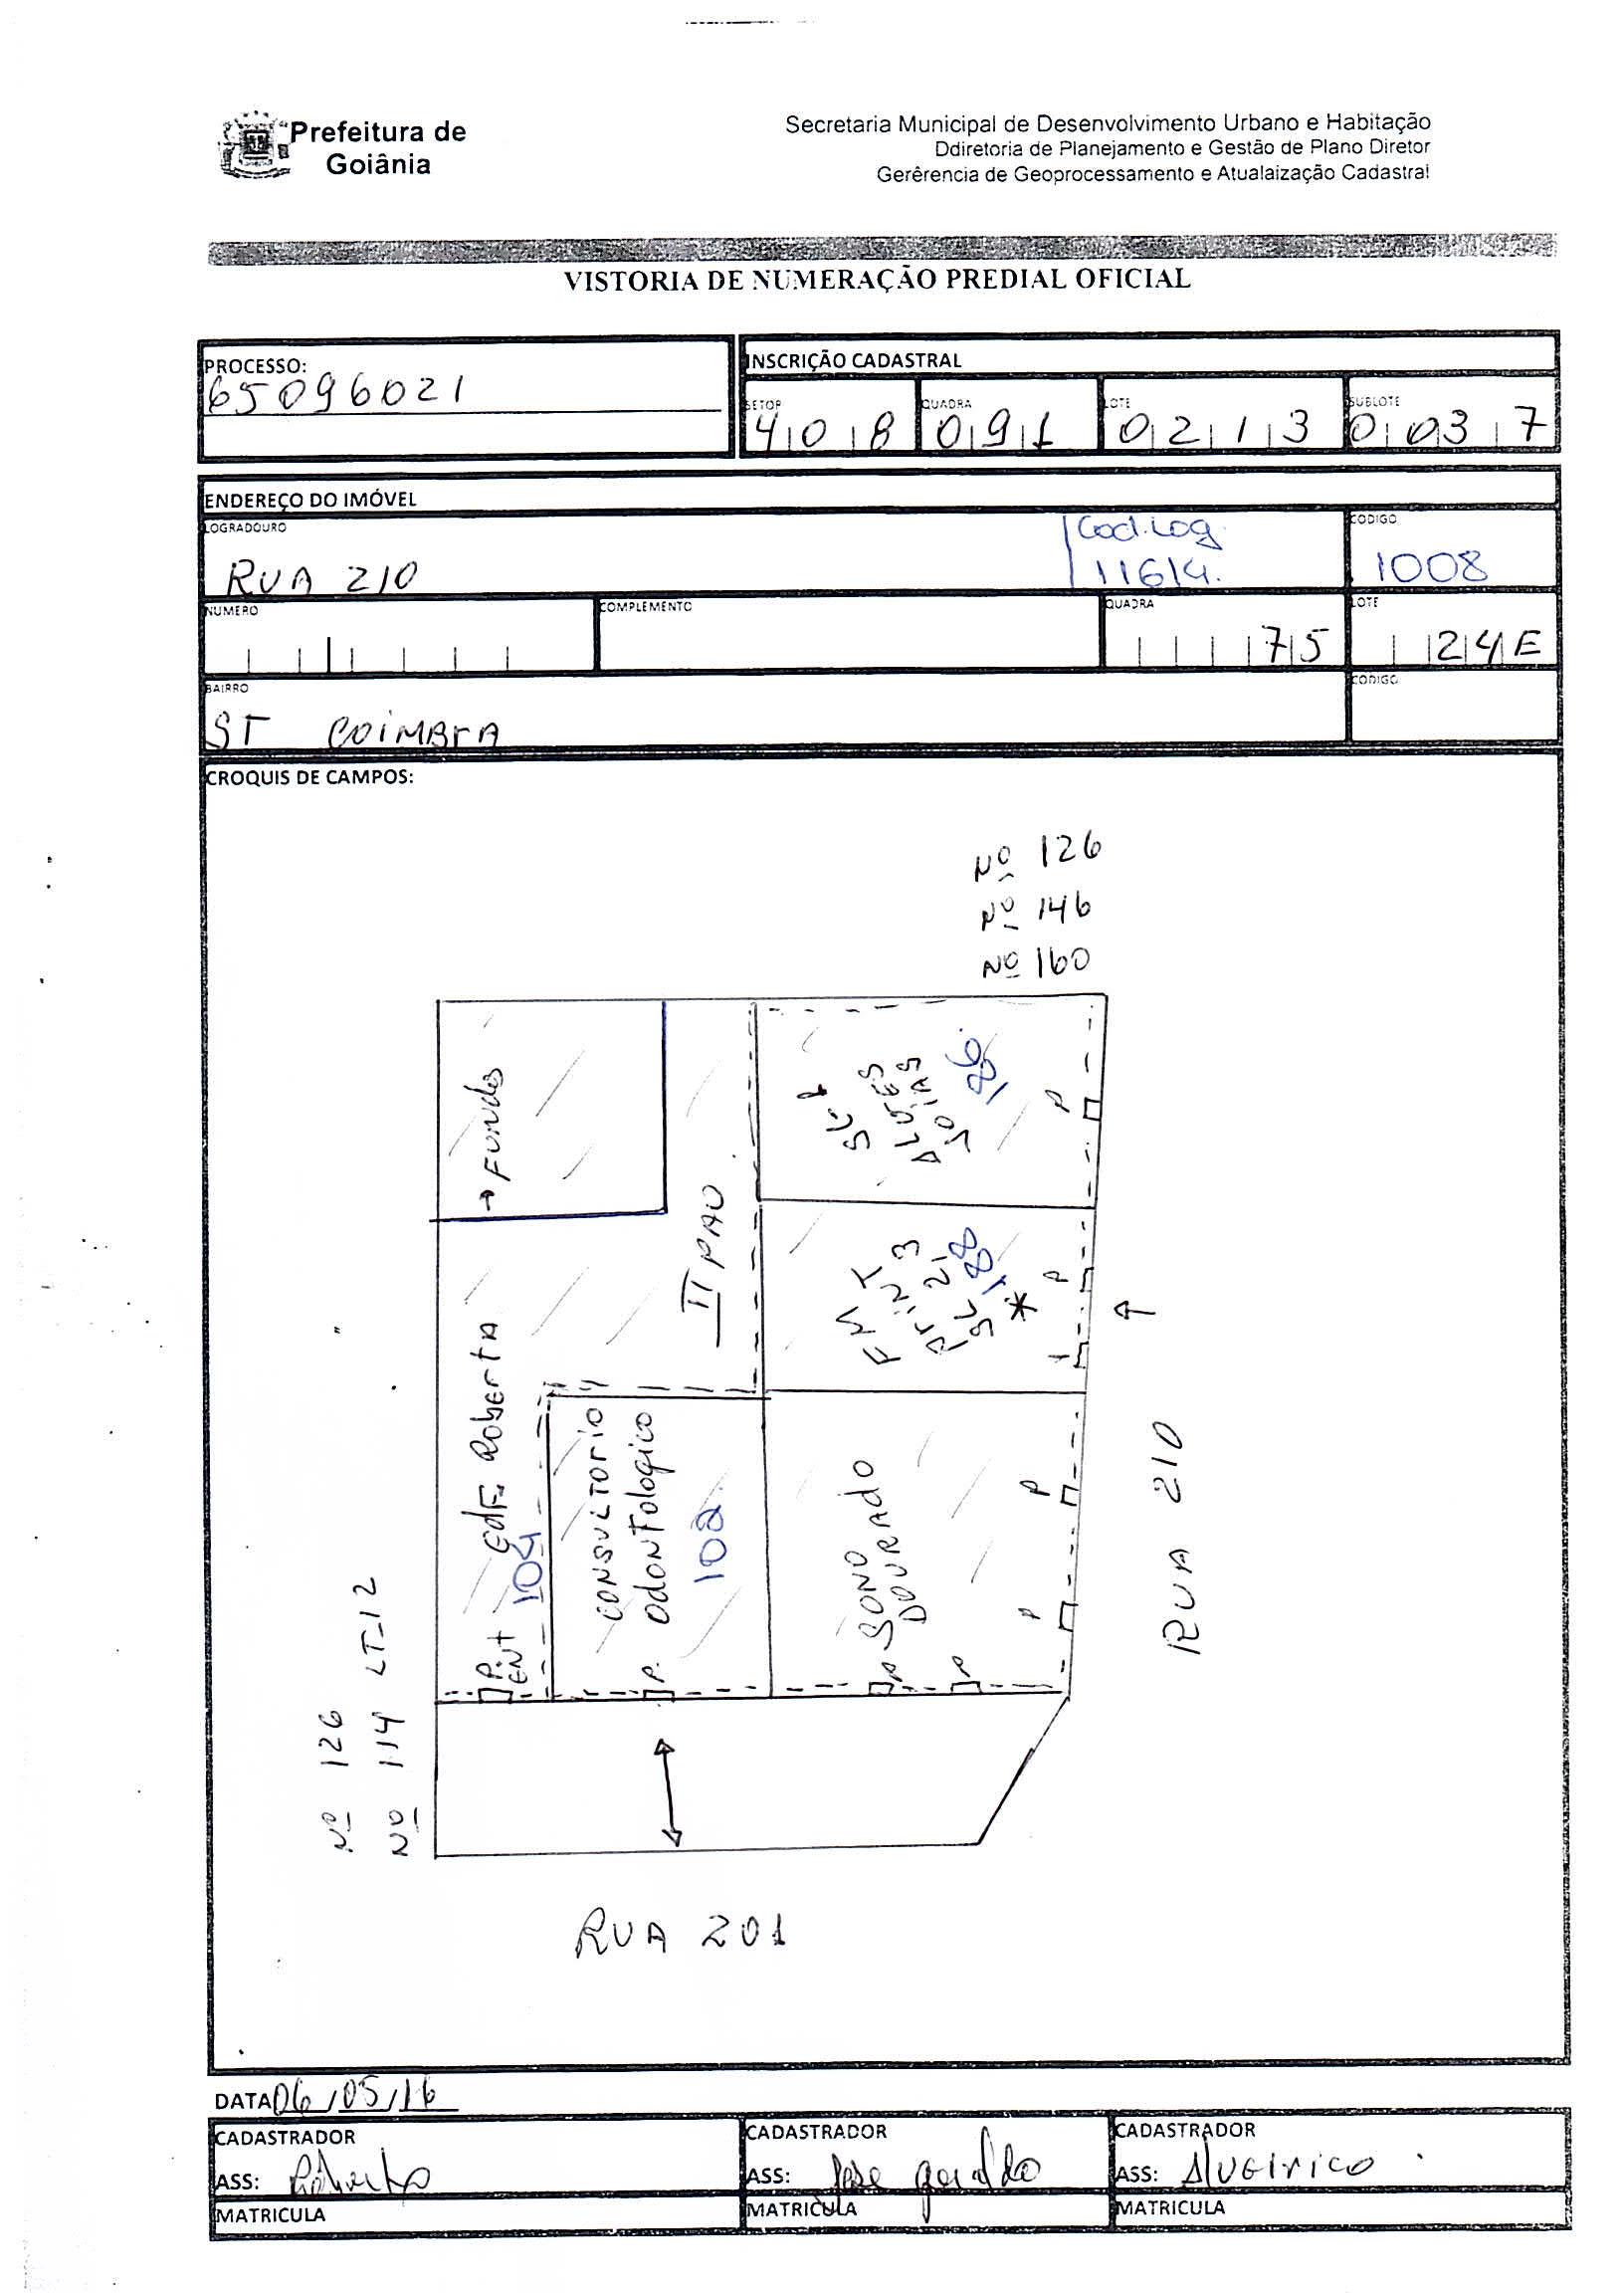 Prefeitura de
Goiânia
Secretaria Municipal de Desenvolvimento Urbano e Habitação
Ddiretoria de Planejamento e Gestão de Plano Diretor
Gerêrencia de Geoprocessamento e Atualaização Cadastral
VISTORIA DE NUMERAÇÃO PREDIAL OFICIAL
PROCESSO:
65096021
INSCRIÇÃO CADASTRAL
SETOR QUADRA LOTE SUBLOTE
408 091 0213 0037
ENDEREÇO DO IMÓVEL
LOGRADOURO
RUA 210
Cod.Log.
11614.
CODIGO
1008
NUMERO COMPLEMENTO QUADRA LOTE
75 24E
BAIRRO CODIGO
ST COIMBrA
CROQUIS DE CAMPOS:
Nº 126
Nº 146
Nº 160
→ FUNdos
II PAV
SL 1
ALVES
JOIAS
FMT
PrINT 3
SL 2
188
*
Edf. Roberta
P. ENT
104
CONSULTORIO
OdONTOlogico
102
P.
SONO
DOURADO
P
P
P
P
P
P
RUA 210
Nº 126
Nº 114 LT-12
RUA 201
DATA 06/05/16
CADASTRADOR CADASTRADOR CADASTRADOR
ASS: Roberto ASS: Jose geraldo ASS:
MATRICULA MATRICULA MATRICULA